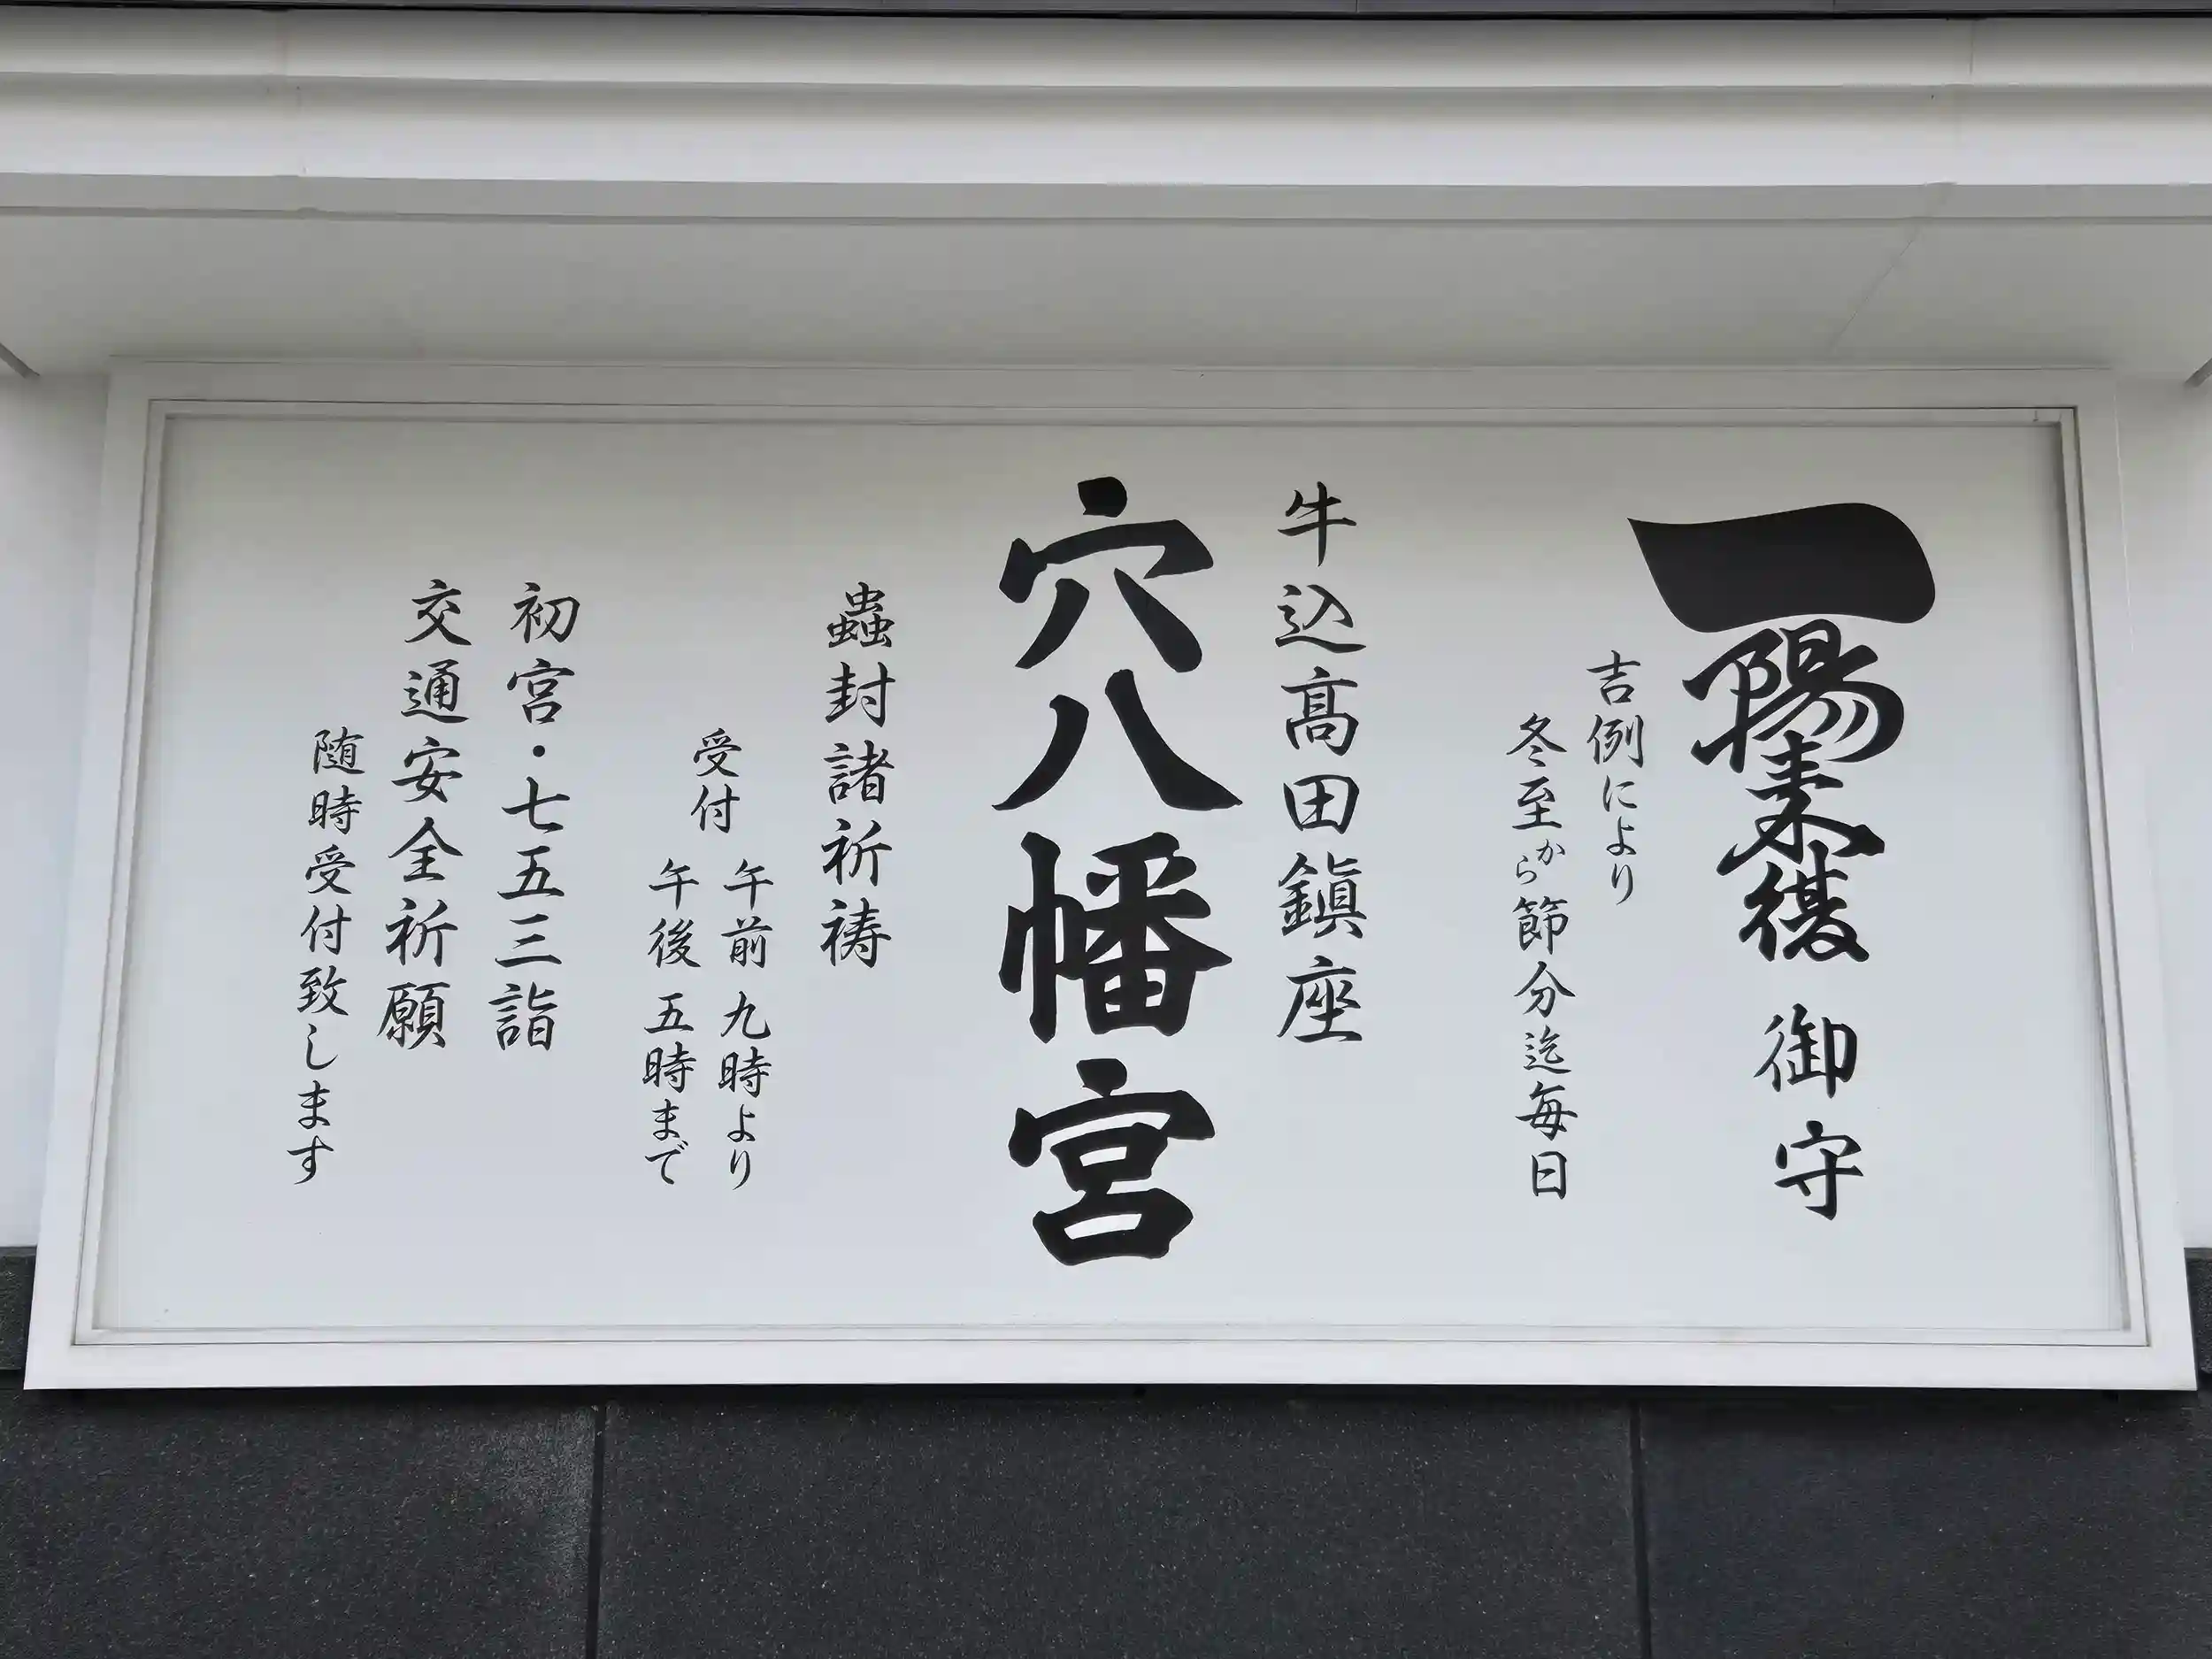 一陽来復 御守
吉例により
冬至から節分迄毎日
牛込高田鎮座
穴八幡宮
蟲封諸祈祷
受付
午前九時より
午後五時まで
初宮・七五三詣
交通安全祈願
随時受付致します